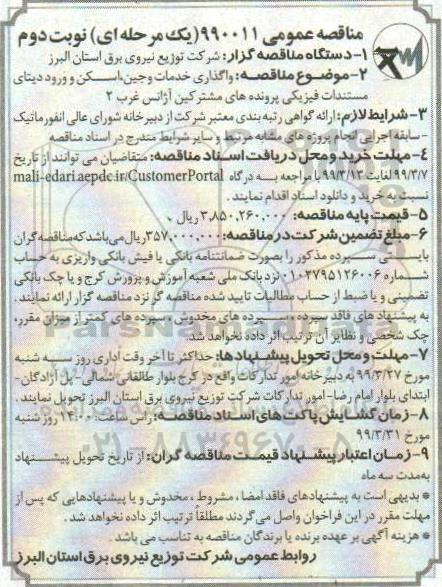 مناقصه عمومی ۹۹۰۰۱۱ (یک مرحله ای) نوبت دوم
۱- دستگاه مناقصه گزار: شرکت توزیع نیروی برق استان البرز
۲- موضوع مناقصه: واگذاری خدمات وجین، اسکن و ورود دیتای
مستندات فیزیکی پرونده های مشترکین آژانس غرب ۲
۳- شرایط لازم: ارائه گواهی رتبه بندی معتبر شرکت از دبیرخانه شورای عالی انفورماتیک
-سابقه اجرایی انجام پروژه های مشابه مرتبط و سایر شرایط مندرج در اسناد مناقصه
۴- مهلت خرید و محل دریافت اسناد مناقصه: متقاضیان می توانند از تاریخ
۹۹/۳/۷ لغایت ۹۹/۳/۱۳ با مراجعه به درگاه mali-edari.aepdc.ir/CustomerPortal
نسبت به خرید و دانلود اسناد اقدام نمایند.
۵- قیمت پایه مناقصه: ۳,۸۵۰,۲۶۰,۰۰۰ ریال.
۶- مبلغ تضمین شرکت در مناقصه: ۳۵۷,۰۰۰,۰۰۰ ریال می باشد که مناقصه گران
بایستی سپرده مذکور را بصورت ضمانتنامه بانکی یا فیش بانکی واریزی به حساب
شماره ۰۱۰۳۷۹۵۱۲۶۰۰۶ نزد بانک ملی شعبه آموزش و پرورش کرج و یا چک بانکی
تضمینی و یا ضبط از حساب مطالبات تایید شده مناقصه گر نزد مناقصه گزار ارائه نمایند.
به پیشنهاد های فاقد سپرده، سپرده های مخدوش، سپرده های کمتر از میزان مقرر،
چک شخصی و نظایر آن ترتیب اثر داده نخواهد شد.
۷- مهلت و محل تحویل پیشنهادها: حداکثر تا آخر وقت اداری روز سه شنبه
مورخ ۹۹/۳/۲۷ به دبیرخانه امور تدارکات واقع در کرج بلوار طالقانی شمالی- پل آزادگان-
ابتدای بلوار امام رضا- امور تدارکات شرکت توزیع نیروی برق استان البرز تحویل نمایند.
۸- زمان گشایش پاکت های اسناد مناقصه: راس ساعت ۱۴:۰۰ روز شنبه
مورخ ۹۹/۳/۳۱
۹- زمان اعتبار پیشنهاد قیمت مناقصه گران: از تاریخ تحویل پیشنهاد
به مدت سه ماه
* بدیهی است به پیشنهادهای فاقد امضا، مشروط، مخدوش و یا پیشنهادهایی که پس از
مهلت مقرر در این فراخوان واصل می گردند مطلقاً ترتیب اثر داده نخواهد شد.
* هزینه آگهی بر عهده برنده یا برندگان مناقصه به تناسب می باشد.
روابط عمومی شرکت توزیع نیروی برق استان البرز
ParsNamadData
۰۲۱-۸۸۳۴۹۶۷۰-۵